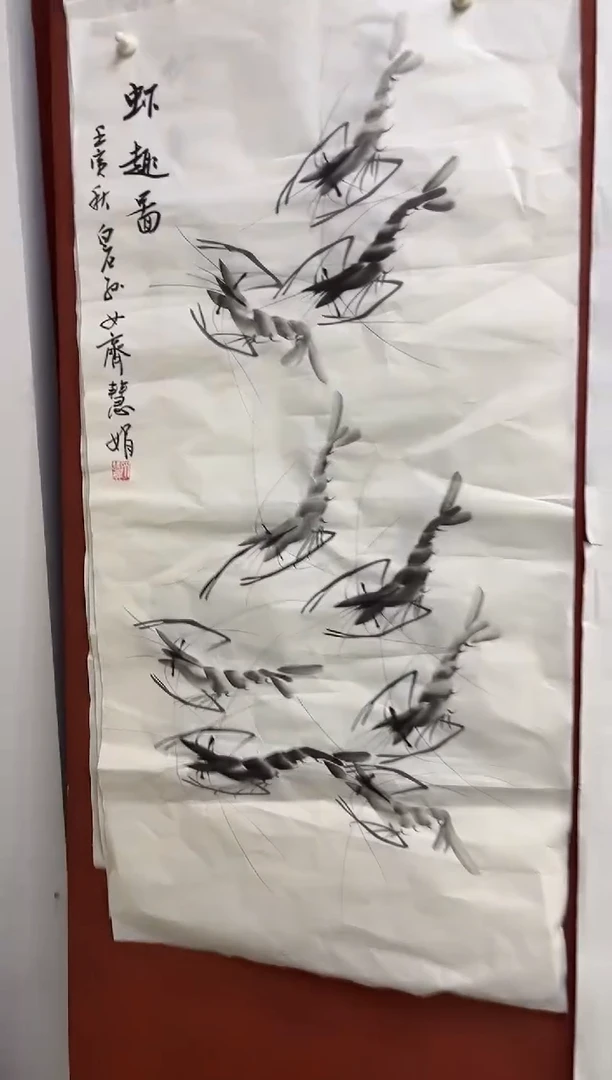 虾趣图
壬寅秋白石孙女齊慧娟